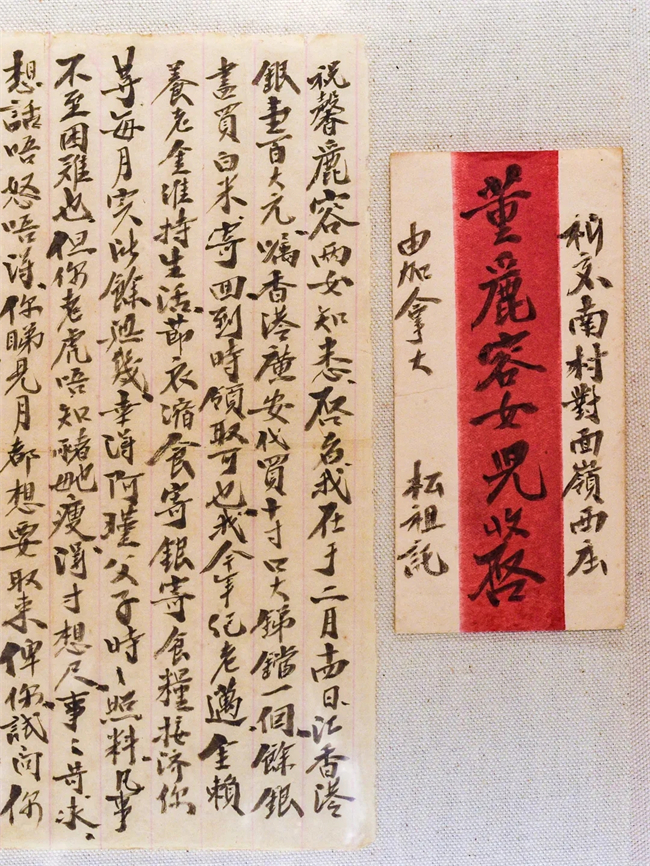 祈交南村對面嶺西庄
董麗容女兒收啓
由加拿大 松祖託
祝馨麗容两女知悉啓者我在于二月十四日汇香港
銀壹百大元嘱香港廣安代買十寸口大銻鐺一個餘銀
盡買白米寄回到時領取可也我今年纪老邁全賴
養老金淮持生活節衣缩食寄銀寄食糧接济你
等每月实所餘無幾幸得阿瓊父子時〻照料凡事
不至困难也但你老虎唔知豬乸瘦得寸想尺事〻苛求
想話唔怒唔得你睇見月都想要取来俾你試问你